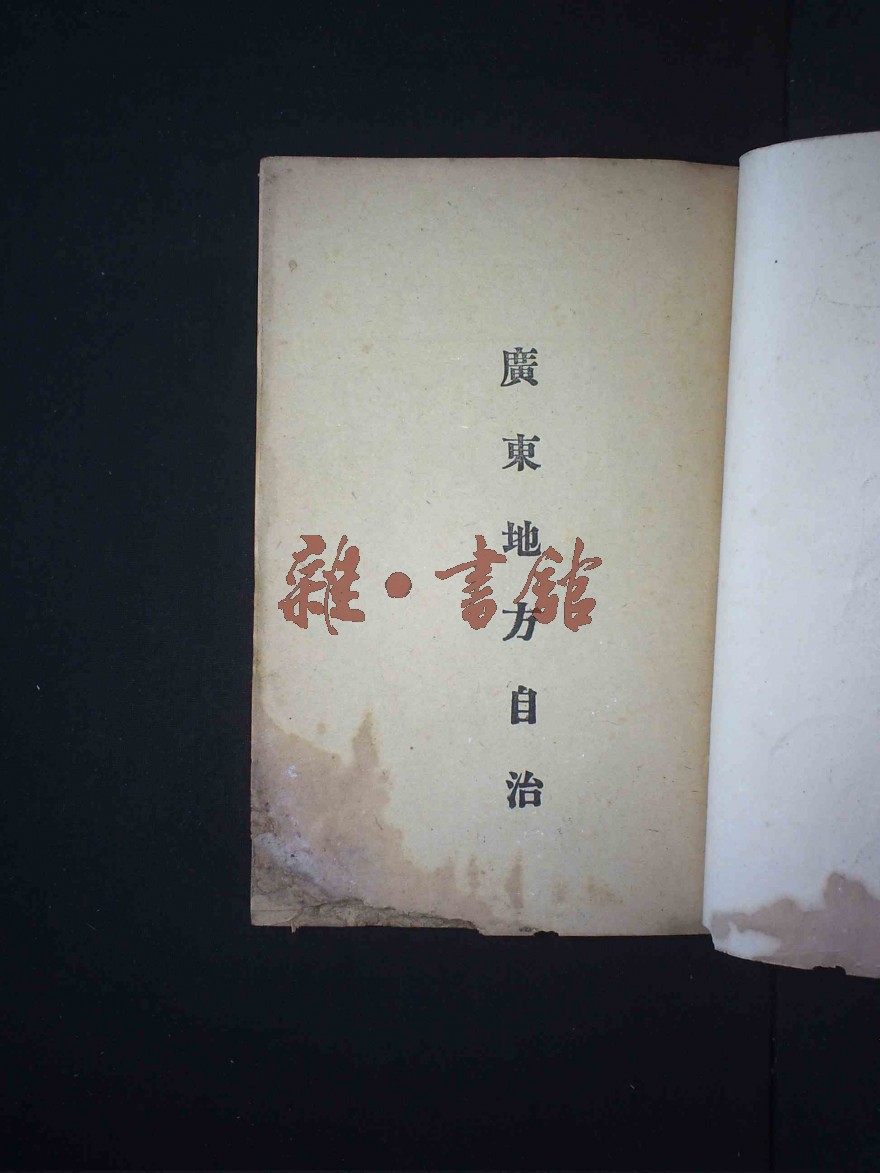 廣東地方自治
雜·書館